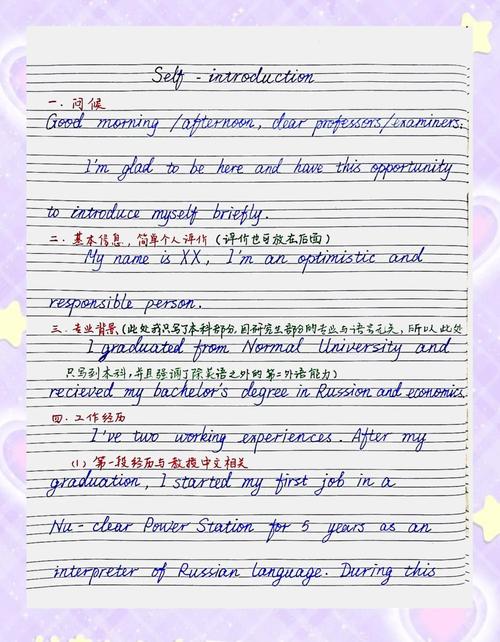 Self - introduction
一. 问候
Good morning /afternoon, dear professors/examiners.
I'm glad to be here and have this opportunity
to introduce myself briefly.
二. 基本信息, 简单个人评价 (评价也可放在后面)
My name is XX, I'm an optimistic and
responsible person.
三. 专业背景 (此处我只写了本科部分, 因研究生部分的专业与语言无关, 所以此处
I graduated from Normal University and
只写到本科, 并且强调了除英语之外的第二外语能力)
recieved my bachelor's degree in Russion and economics.
四. 工作经历
I've two working experiences. After my
(1) 第一段经历与教授中文相关
graduation, I started my first job in a
Nu-clear Power Station for 5 years as an
interpreter of Russian language. During this